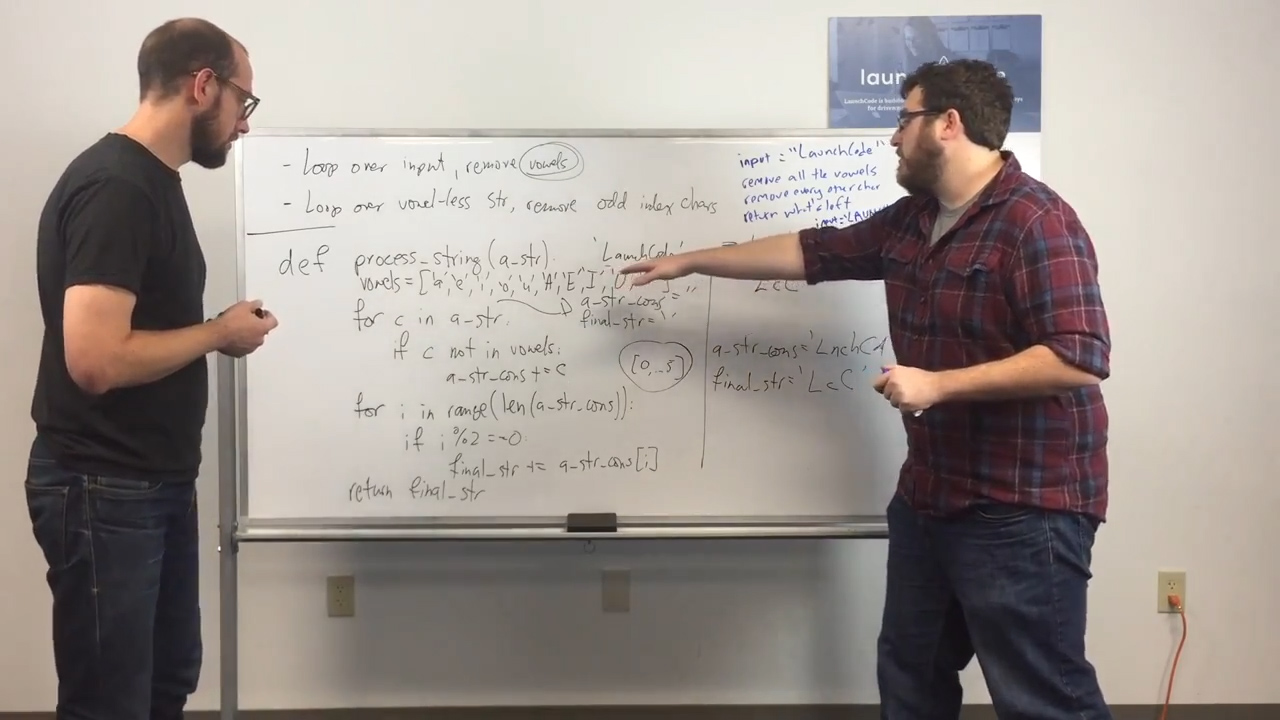 laun
LaunchCode is building
For driven
- Loop over input, remove vowels
- Loop over vowel-less str, remove odd index chars
input = "LaunchCode"
remove all the vowels
remove every other char
return what's left
input='LAUNC
def process_string(a_str):
'LaunchCode'
vowels=['a','e','i','o','u','A','E','I','O'
LcC
a_str_cons=''
final_str=''
for c in a_str:
if c not in vowels:
a_str_cons += c
[0,..5]
a_str_cons='LnchCd
final_str='LcC'
for i in range(len(a_str_cons)):
if i %2 ==0:
final_str += a_str_cons[i]
return final_str